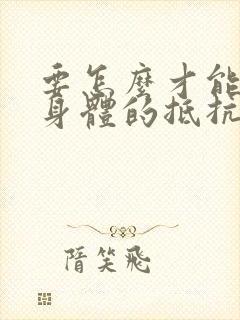 要怎麼才能
身體的抵抗
隋笑飛